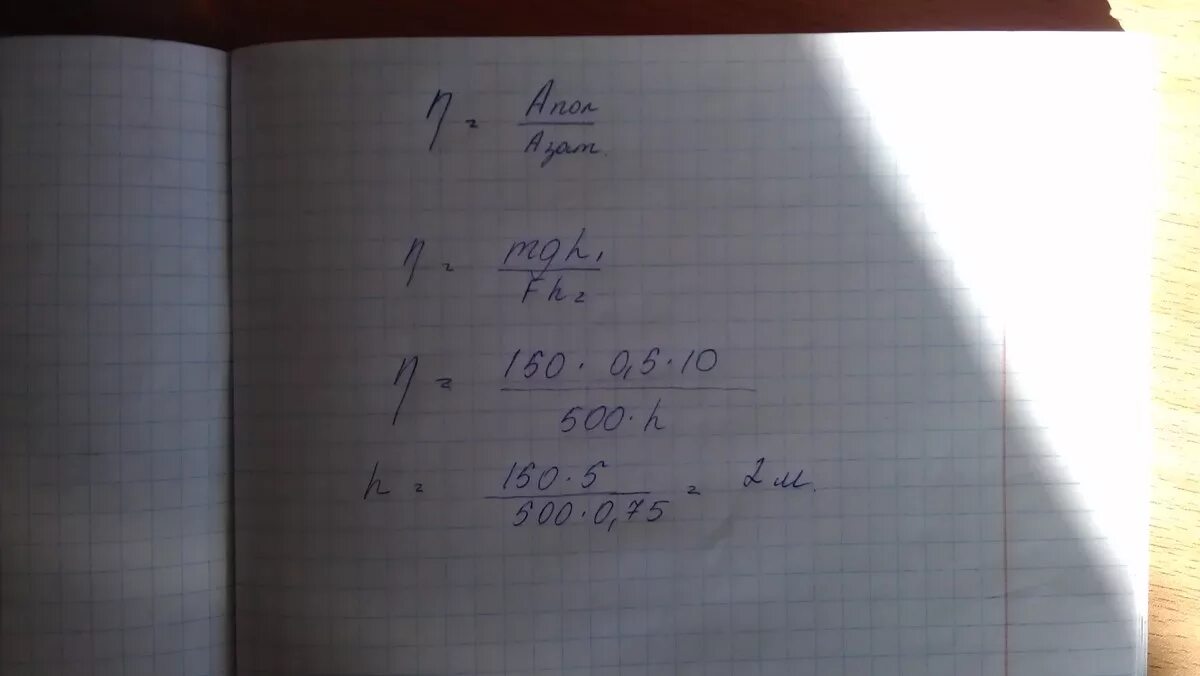 η = Aпол / Aзат.
η = mgh₁ / Fh₂
η = 150 · 0,5 · 10 / 500 · h
h = 150 · 5 / 500 · 0,75 = 2 м.